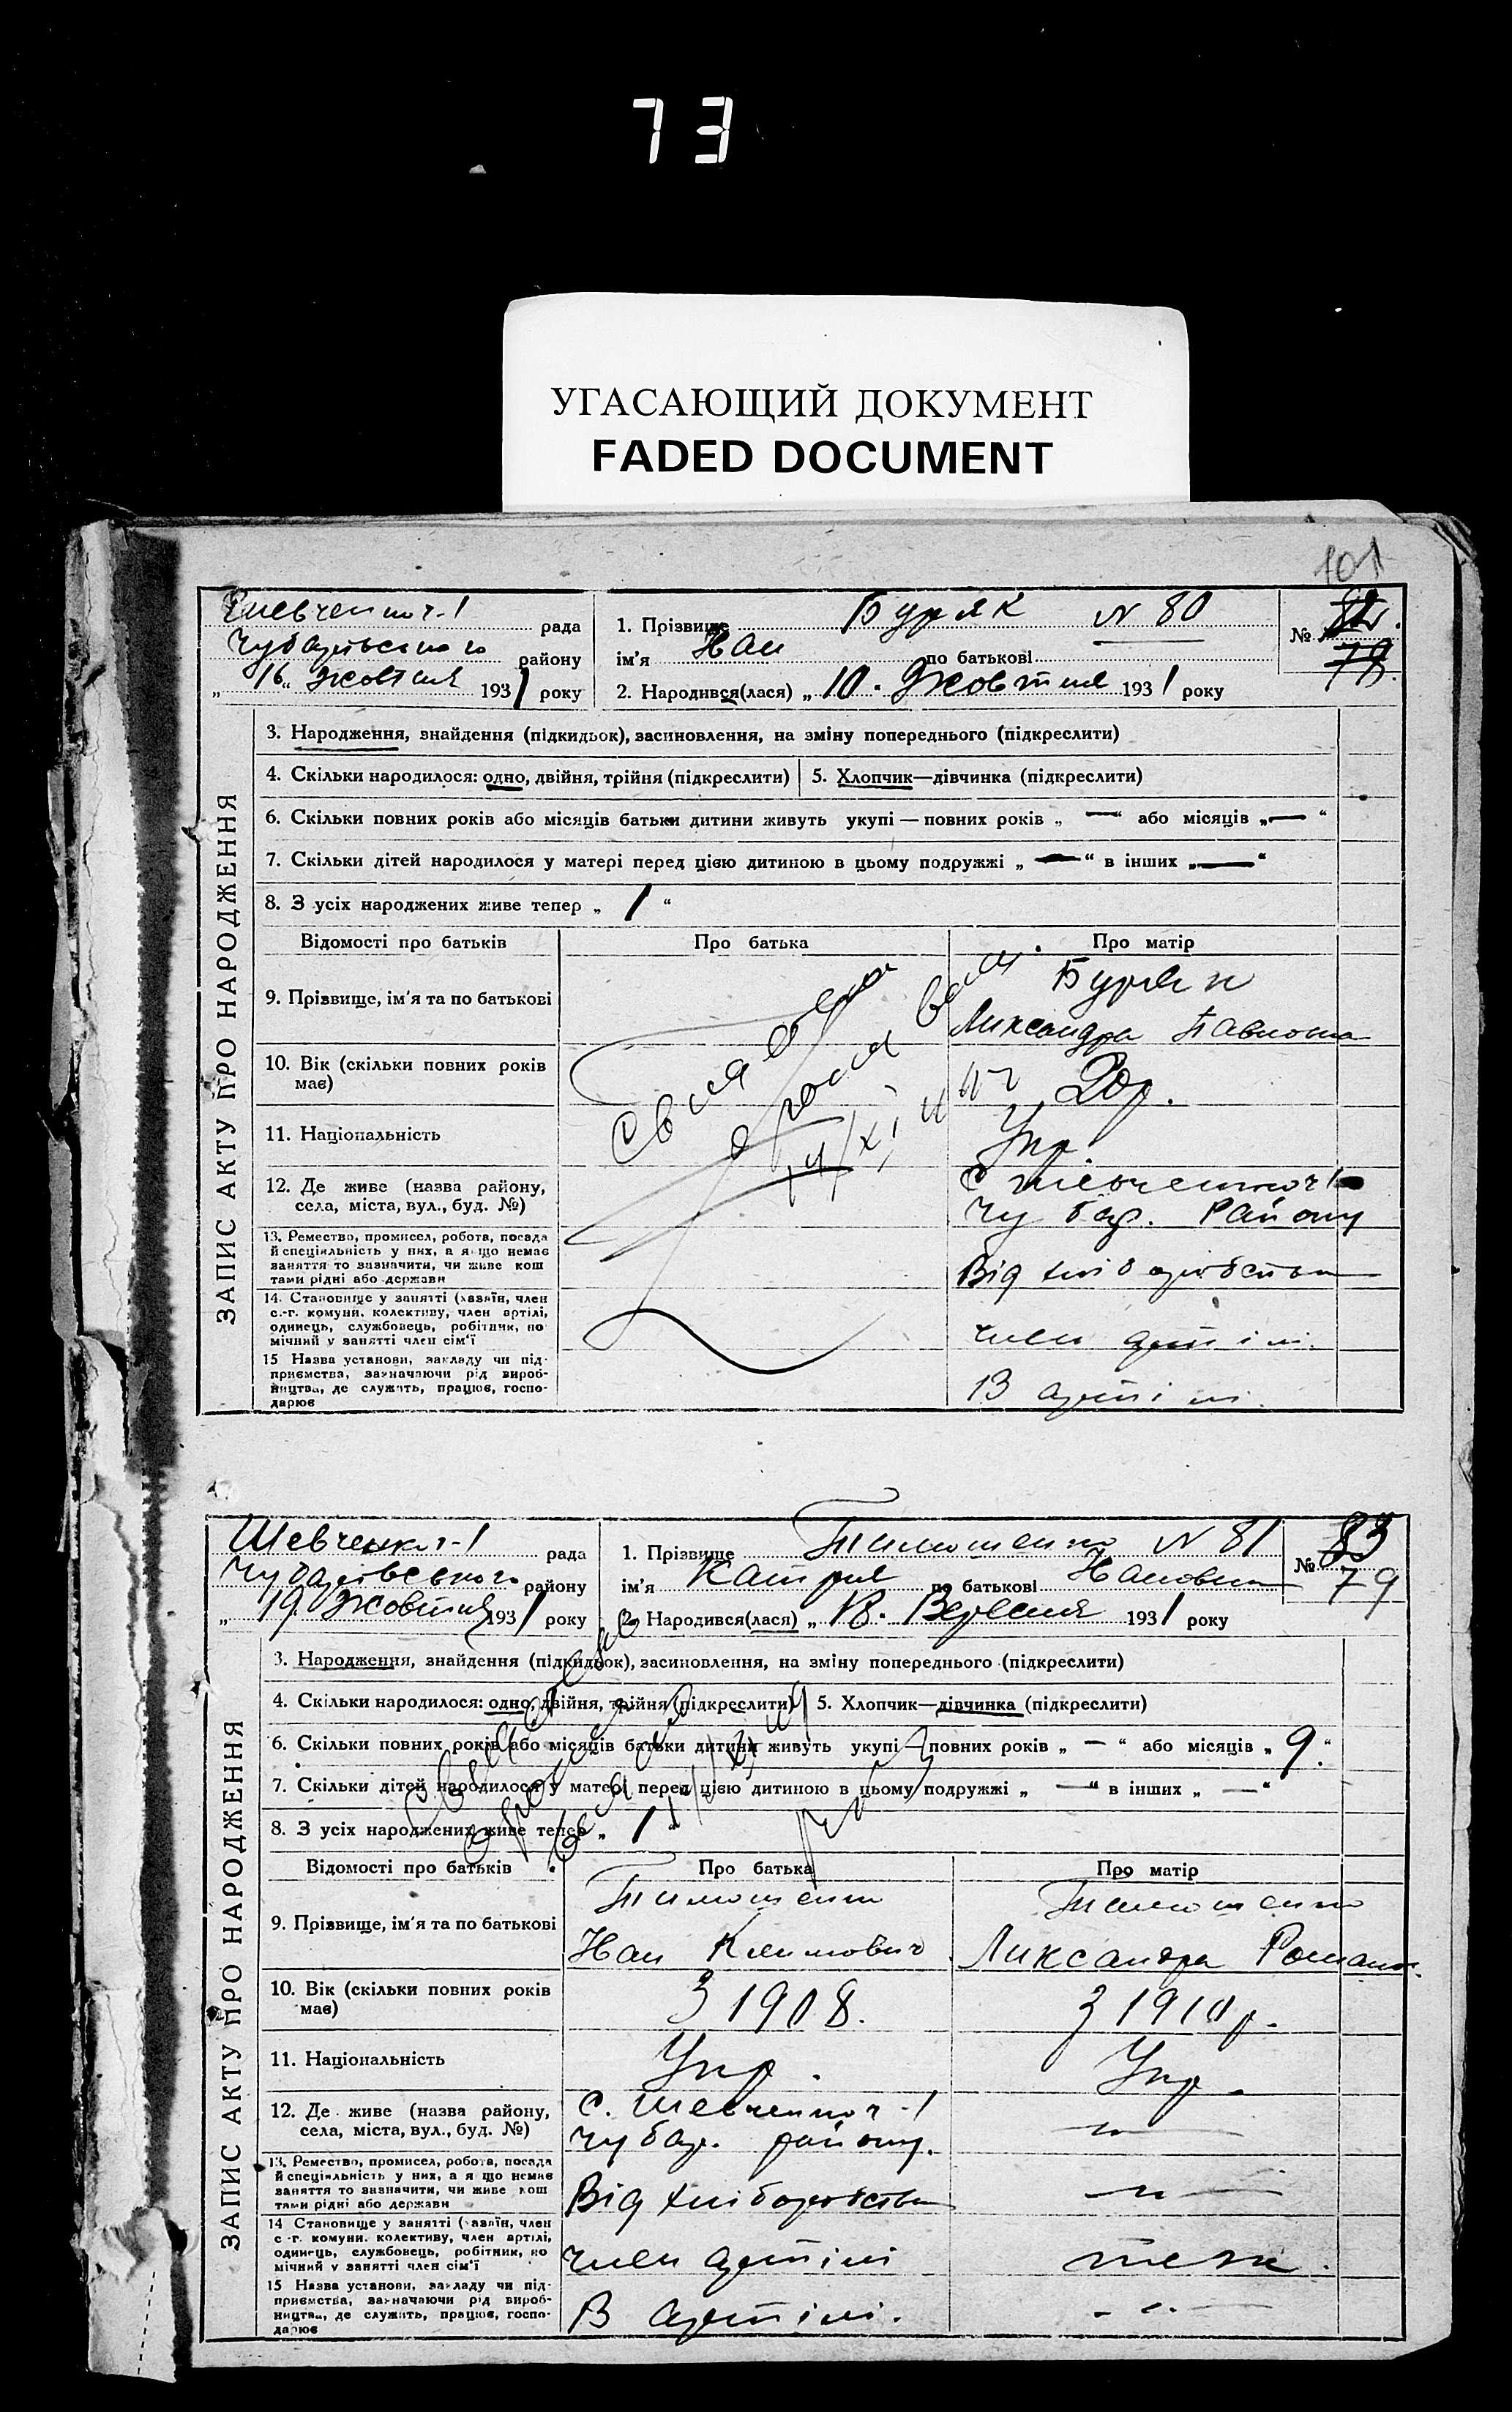 73
УГАСАЮЩИЙ ДОКУМЕНТ
FADED DOCUMENT
101
Шевченков-1 рада
Чубарівського району
„16“ Жовтня 1931 року
1. Прізвище Буряк N 80
ім'я Иан по батькові
2. Народився(лася) „10. Жовтня 1931 року
№ 78.
ЗАПИС АКТУ ПРО НАРОДЖЕННЯ
3. Народження, знайдення (підкидьок), засиновлення, на зміну попереднього (підкреслити)
4. Скільки народилося: одно, двійня, трійня (підкреслити) 5. Хлопчик—дівчинка (підкреслити)
6. Скільки повних років або місяців батьки дитини живуть укупі — повних років „ — “ або місяців „ — “
7. Скільки дітей народилося у матері перед цією дитиною в цьому подружжі „ — “ в інших „ — “
8. З усіх народжених живе тепер „ 1 “
Відомості про батьків Про батька Про матір
9. Прізвище, ім'я та по батькові
Буряк
Ликсандра Павловна
10. Вік (скільки повних років має)
20р.
11. Національність
Укр
12. Де живе (назва району, села, міста, вул., буд. №)
с Шевченков 1
Чубар. Району
13. Ремество, промисел, робота, посада й спеціяльність у них, а якщо немає заняття то зазначити, чи живе кош тами рідні або держави
Від хліборобства
14. Становище у занятті (хазяїн, член с.-г. комуни, колективу, член артілі, одинець, службовець, робітник, по мічний у занятті член сім'ї
член артілі.
15 Назва установи, закладу чи підприємства, зазначаючи рід виробництва, де служить, працює, господарює
В артілі.
14/XI
Шевченков-1 рада
Чубарівського району
„19. Жовтня 1931 року
1. Прізвище Тимошенко N 81
ім'я Катря по батькові Иановна
2. Народився(лася) „18. Вересня 1931 року
№ 83
79
ЗАПИС АКТУ ПРО НАРОДЖЕННЯ
3. Народження, знайдення (підкидьок), засиновлення, на зміну попереднього (підкреслити)
4. Скільки народилося: одно, двійня, трійня (підкреслити) 5. Хлопчик—дівчинка (підкреслити)
6. Скільки повних років або місяців батьки дитини живуть укупі — повних років „ — “ або місяців „ 9 “
7. Скільки дітей народилося у матері перед цією дитиною в цьому подружжі „ — “ в інших „ — “
8. З усіх народжених живе тепер „ 1 “
Відомості про батьків Про батька Про матір
9. Прізвище, ім'я та по батькові
Тимошенко Тимошенко
Иан Климович Ликсандра Роман.
10. Вік (скільки повних років має)
З 1908. З 1910р.
11. Національність
Укр. Укр.
12. Де живе (назва району, села, міста, вул., буд. №)
с. Шевченков-1
Чубар. району. —"—
13. Ремество, промисел, робота, посада й спеціяльність у них, а якщо немає заняття то зазначити, чи живе кош тами рідні або держави
Від хліборобства —"—
14 Становище у занятті (хазяїн, член с-г. комуни, колективу, член артілі, одинець, службовець, робітник, по мічний у занятті член сім'ї
член артілі теж.
15 Назва установи, закладу чи підприємства, зазначаючи рід виробництва, де служить, працює, господарює
В артілі. -"-